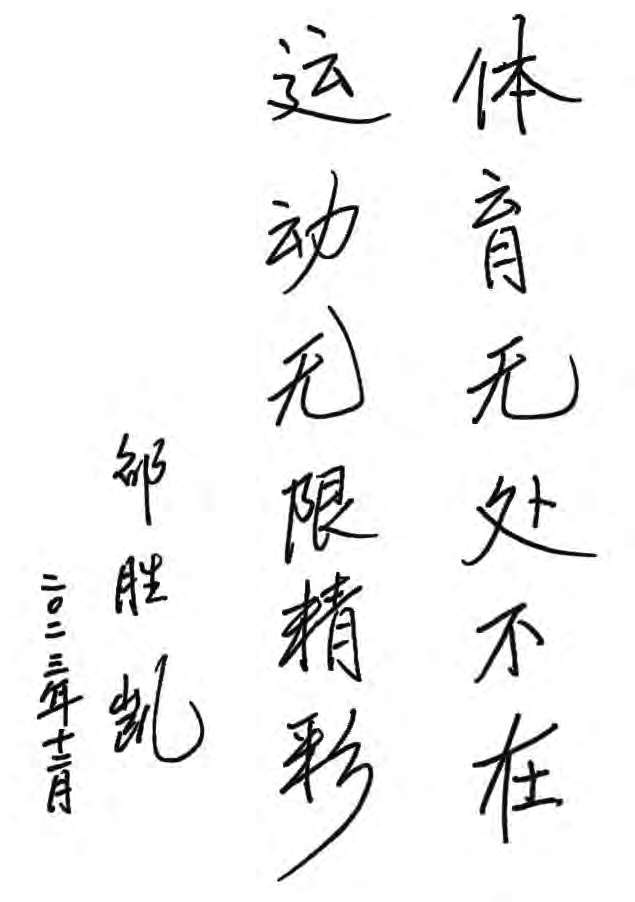 体育无处不在
运动无限精彩
邹胜凯
二〇二三年十二月